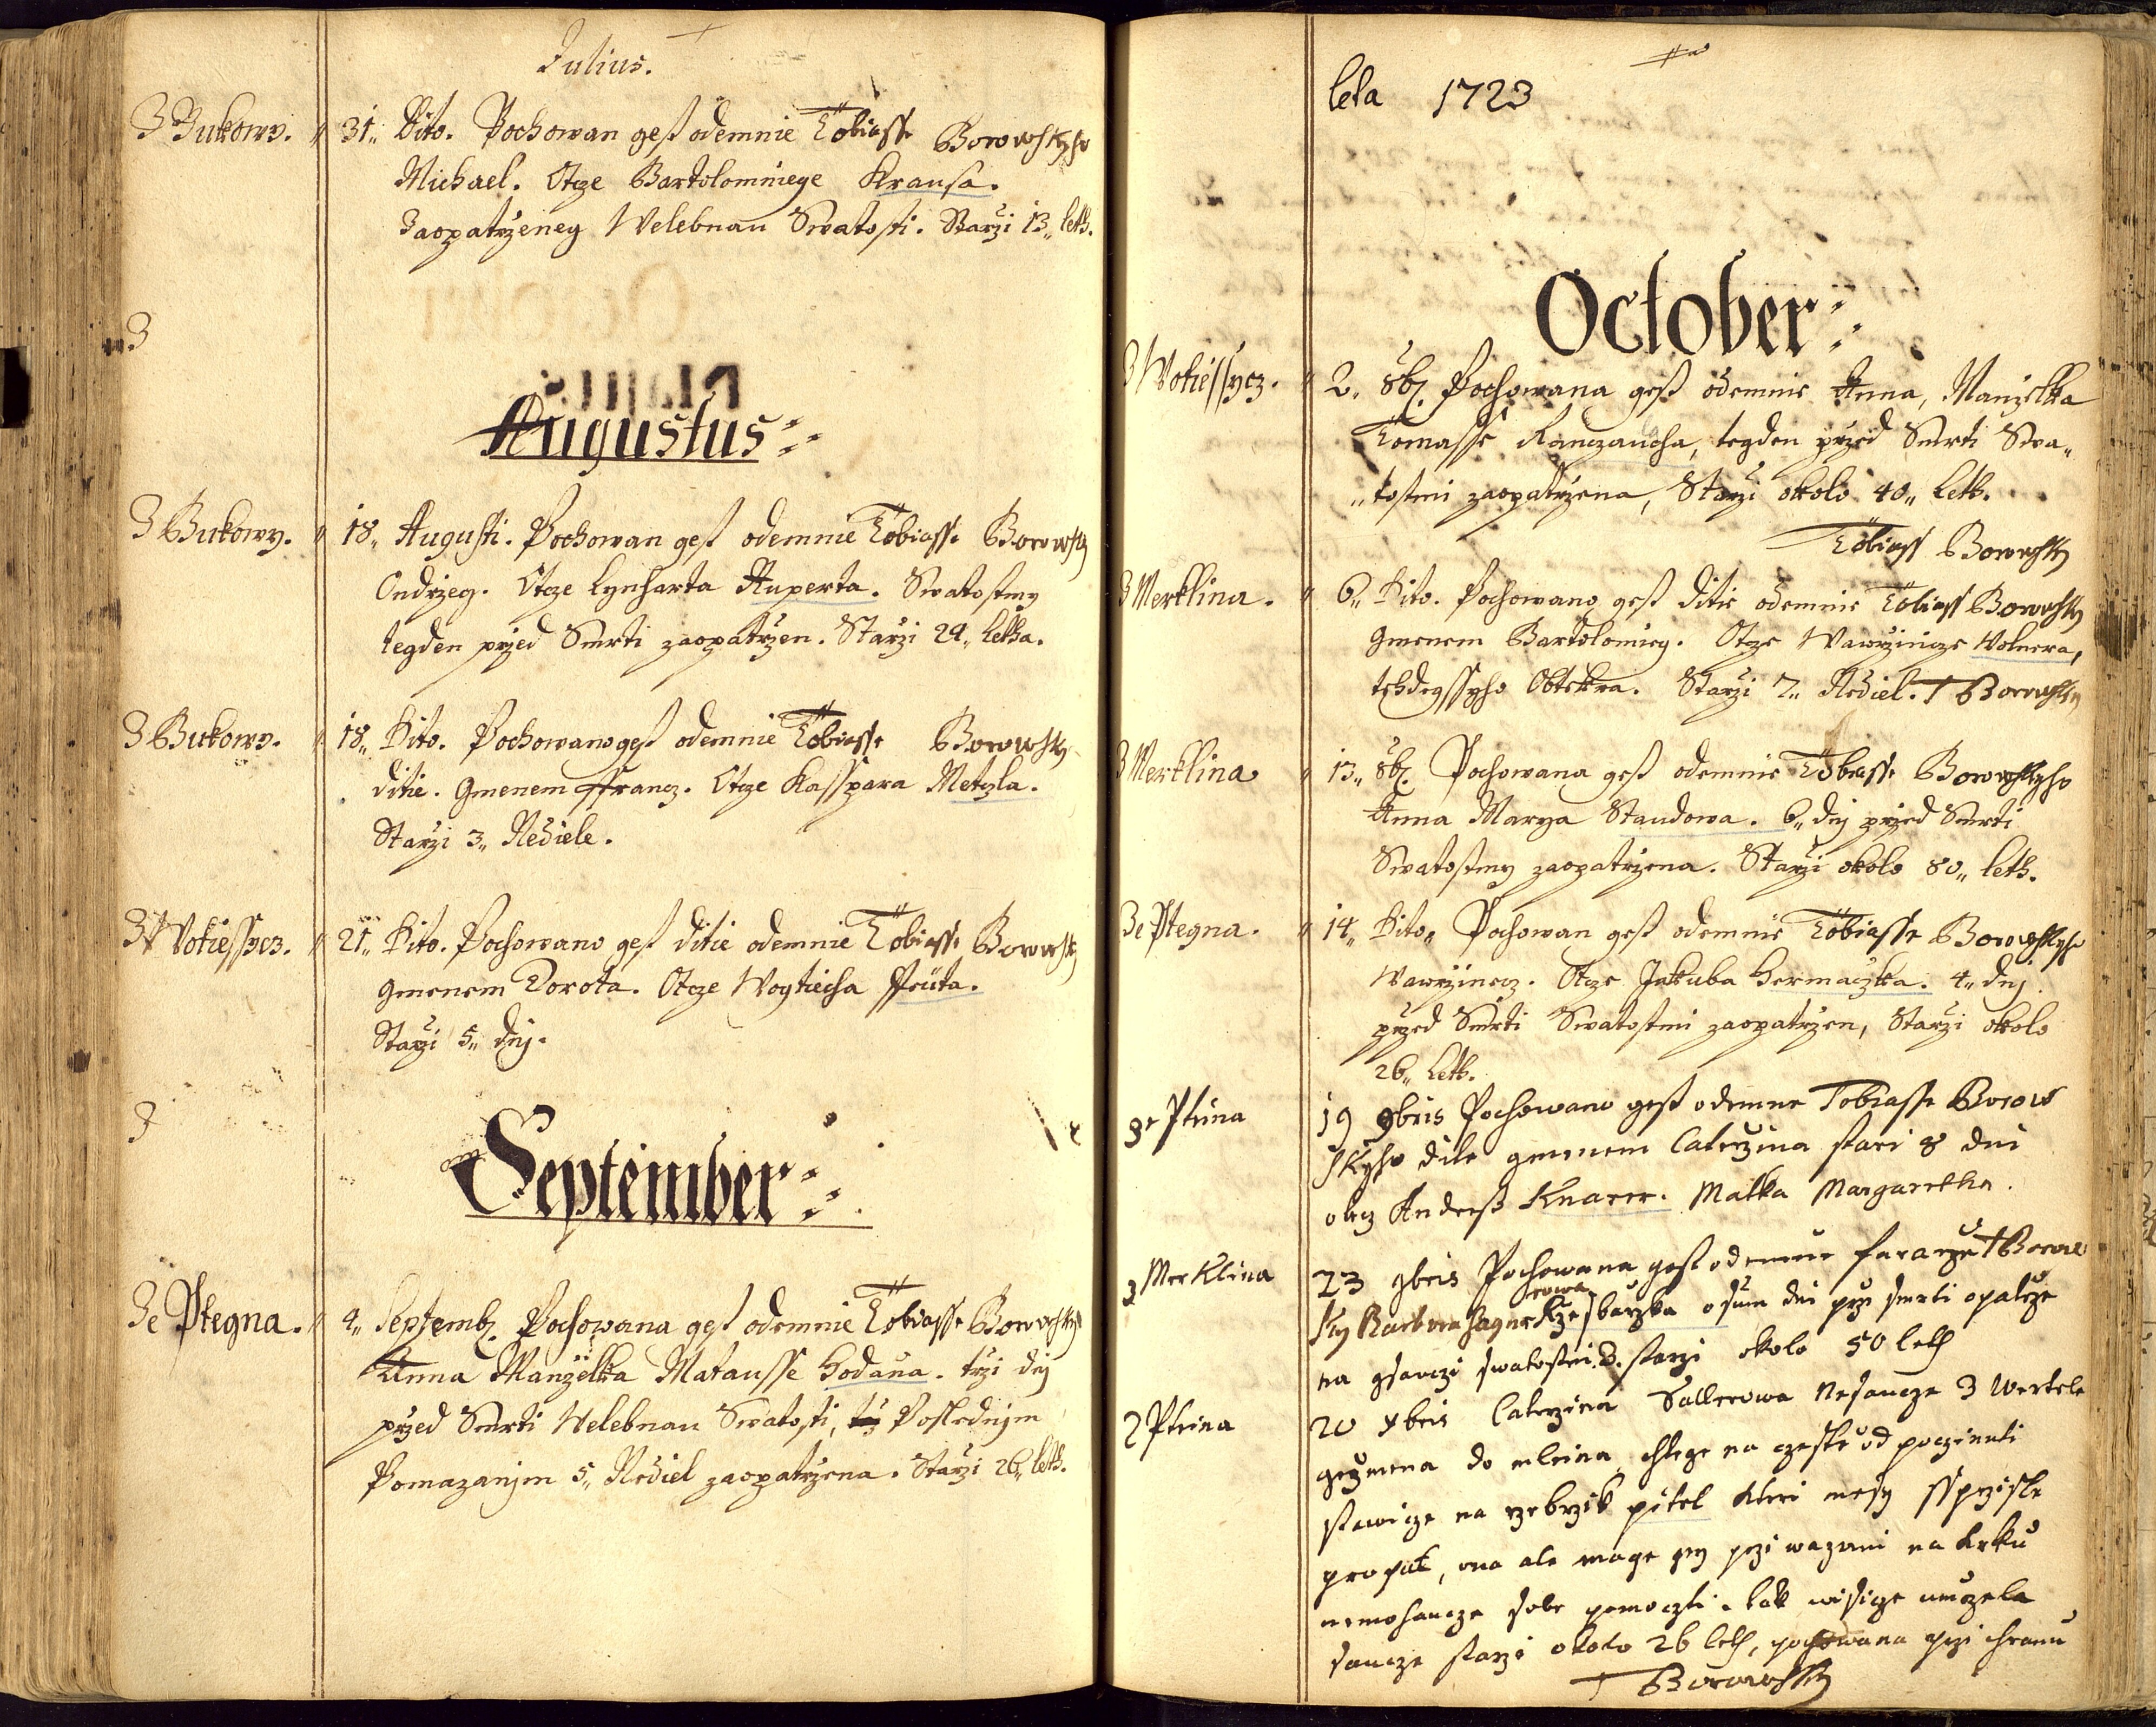 Julius.
Z Bukowy. 31. Dito. Pochowan gest odemnie Tobiasse Borowskyho
Michael. Otcze Bartolomiege Krausa.
Zaopatrzeney Welebnau Swatosti. Starzi 13. leth.
Z
Augustus
Z Bukowy. 18. Augusti. Pochowan gest odemnie Tobiasse Borowsky
Ondrzeg. Otcze Lynharta Ruperta. Swatostmy
tegden przed Smrti zaopatrzen. Starzi 24. letha.
Z Bukowy. 18. Dito. Pochowano gest odemnie Tobiasse Borowsky
ditie. Gmenem Francz. Otcze Kasspara Metzla.
Starzi 3. Nediele.
Z Wotiessycz. 21. Dito. Pochowano gest ditie odemnie Tobiasse Borowsky
Gmenem Dorota. Otcze Wogtiecha
Starzi 5. dnj.
Z
September
Ze Ptegna. 4. Septemb. Pochowana gest odemnie Tobiasse Borowsky
Anna Manzelka Matausse Hodana. trzi dnj
przed Smrti Welebnau Swatosti, Poslednjm
Pomazanjm 5. Nediel zaopatrzena. Starzi 26. leth.
leta 1723
October
Z Wotiessycz. 2. 8b. Pochowana gest odemnie Anna, Manzelka
Tomasse, tegden przed Smrti Swa-
tostmi zaopatrzena, Starzi okolo 40. leth.
Tobiass Borowsky
Z Merklina. 6. Dito. Pochowano gest ditie odemnie Tobiass Borowsky
Gmenem Bartolomieg. Otcze Wawrzincze Wolnera,
tehdegssyho Obtekra. Starzi 7. Nediel. T Borowsky
Z Merklina 13. 8b. Pochowana gest odemnie Tobiasse Borowskyho
Anna Marya Staudowa. 6. dnj przed Smrti
Swatostmy zaopatrzena. Starzi okolo 80. leth.
Ze Ptegna. 14. Dito. Pochowan gest odemnie Tobiasse Borowskyho
Wawrzinecz. Otcze Jakuba Hermaczka. 4. dnj
przed Smrti Swatostmi zaopatrzen, Starzi okolo
26. leth.
Ze Ptina 19 9bris Pochowano gest odemne Tobiasse Borow
skyho dite gmenem Caterzina stari 8 dni
otecz Anderss Knarer. Matka Margaretha.
Z Merklina 23 9bris Pochowana gest odemne fararze T Borow
sky Barbora osum dni przi smrti opatrze
na gsauczi swatostmi. starzi okolo 50 leth
Z Ptina 20 xbris Caterzina Sallerowa nesaucze 3 Wertele
geczmena do mleina, chtege na czeste od poczinuti
stawicze na rzebrzik pitel kteri nesy
propat, ona ale mage gey przi wazani na krku
nemohaucze sobe pomoczti. tak wisicze umrzela
saucze starzi okolo 26 leth, pochowana przi chramu
T Borowsky